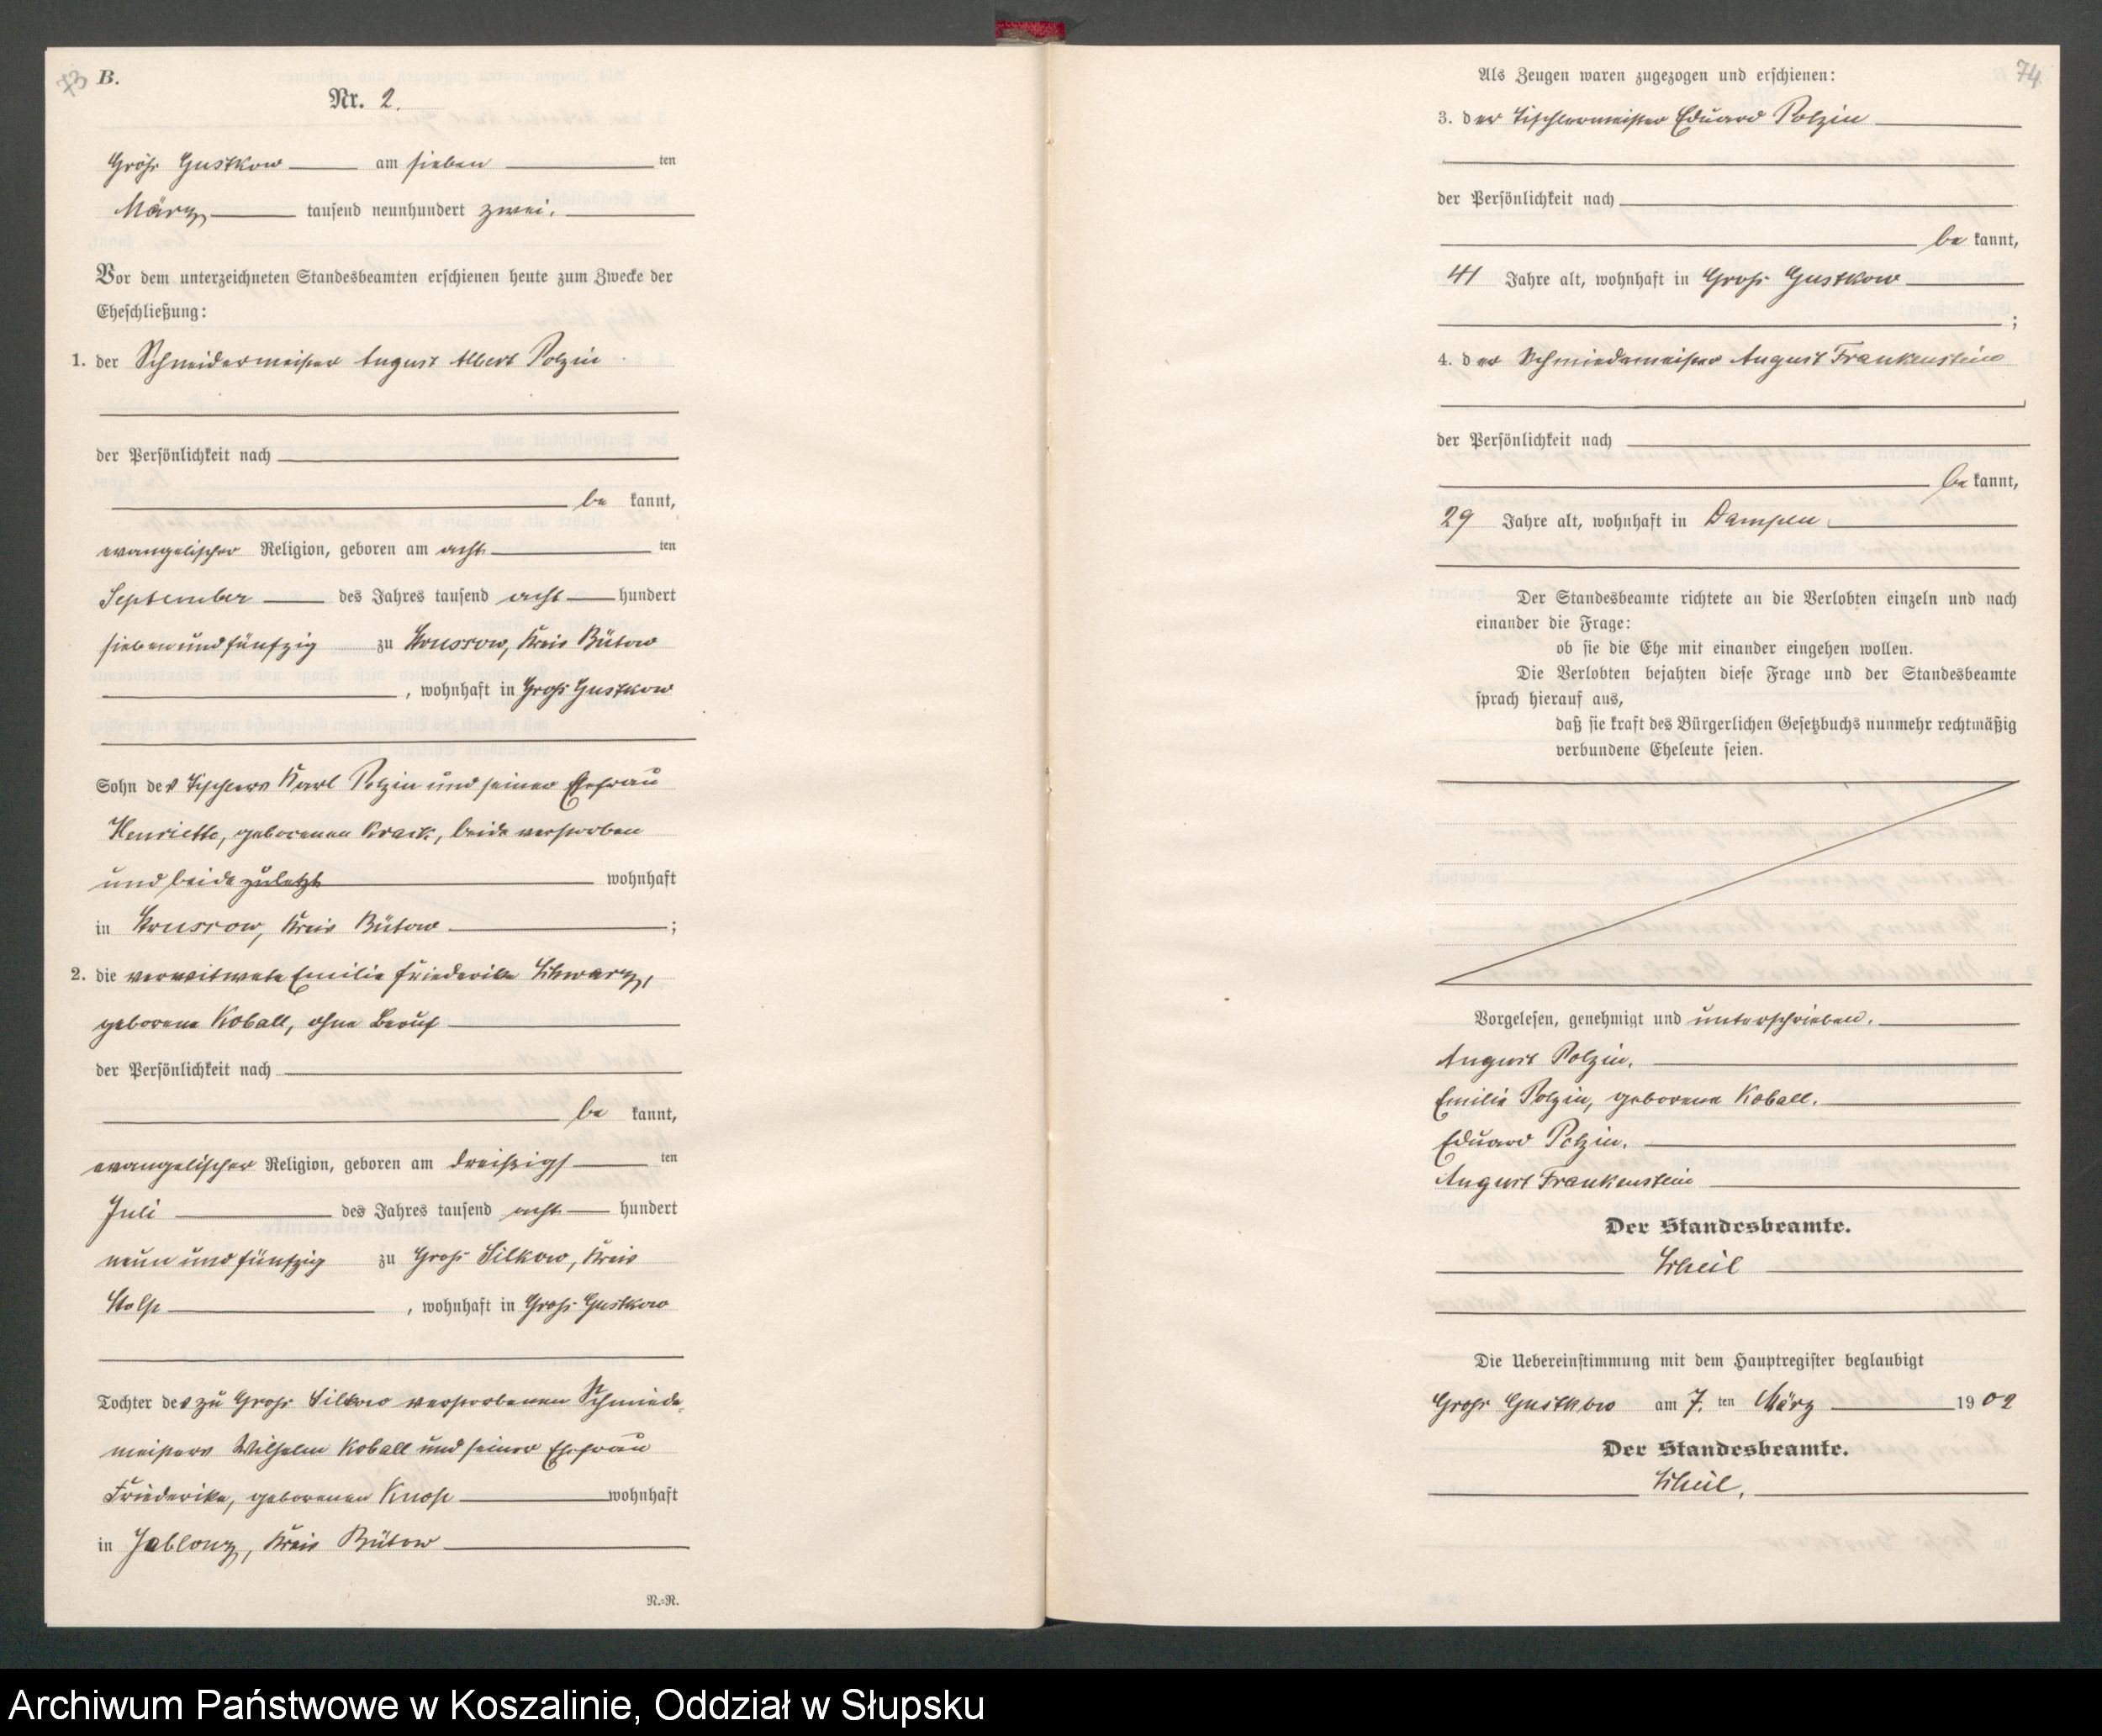 73
B.
Nr. 2.
Groß Gustkow am sieben ten
März tausend neunhundert zwei.
Vor dem unterzeichneten Standesbeamten erschienen heute zum Zwecke der
Eheschließung:
1. der Schneidermeister August Albert Polzin
der Persönlichkeit nach
be kannt,
evangelischer Religion, geboren am acht ten
September des Jahres tausend acht hundert
siebenundfünfzig zu Strussow, Kreis Bütow
, wohnhaft in Groß Gustkow
Sohn des Tischlers Karl Polzin und seiner Ehefrau
Henriette, geborenen Krack, beide verstorben
und beide zuletzt wohnhaft
in Strussow, Kreis Bütow ;
2. die verwitwete Emilie Friederike Schwarz,
geborene Koball, ohne Beruf
der Persönlichkeit nach
be kannt,
evangelischer Religion, geboren am dreißigst ten
Juli des Jahres tausend acht hundert
neun und fünfzig zu Groß Silkow, Kreis
Stolp , wohnhaft in Groß Gustkow
Tochter des zu Groß Silkow verstorbenen Schmiede-
meisters Wilhelm Koball und seiner Ehefrau
Friederike, geborenen Knop wohnhaft
in Jablonz, Kreis Bütow
N.=R.
74
Als Zeugen waren zugezogen und erschienen:
3. der Tischlermeister Eduard Polzin
der Persönlichkeit nach
be kannt,
41 Jahre alt, wohnhaft in Groß Gustkow
;
4. der Schmiedemeister August Frankenstein
der Persönlichkeit nach
be kannt,
29 Jahre alt, wohnhaft in Dampen
Der Standesbeamte richtete an die Verlobten einzeln und nach
einander die Frage:
ob sie die Ehe mit einander eingehen wollen.
Die Verlobten bejahten diese Frage und der Standesbeamte
sprach hierauf aus,
daß sie kraft des Bürgerlichen Gesetzbuchs nunmehr rechtmäßig
verbundene Eheleute seien.
Vorgelesen, genehmigt und unterschrieben.
August Polzin.
Emilie Polzin, geborene Koball.
Eduard Polzin.
August Frankenstein
Der Standesbeamte.
Scheil
Die Uebereinstimmung mit dem Hauptregister beglaubigt
Groß Gustkow am 7. ten März 1902
Der Standesbeamte.
Scheil.
Archiwum Państwowe w Koszalinie, Oddział w Słupsku